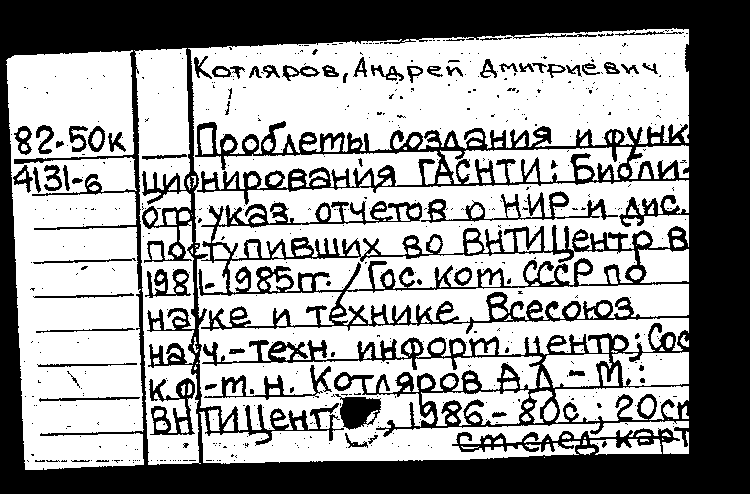 Котляров, Андрей Дмитриевич
82-50к Проблемы создания и функ-
4131-6 ционирования ГАСНТИ: Библи-
огр. указ. отчетов о НИР и дис.
поступивших во ВНТИЦентр в
1981-1985гг. / Гос. ком. СССР по
науке и технике, Всесоюз.
науч.-техн. информ. центр; Сос
к.ф.-м.н. Котляров А.Д. - М.:
ВНТИЦент, 1986.- 80с.; 20см
см.след.карт